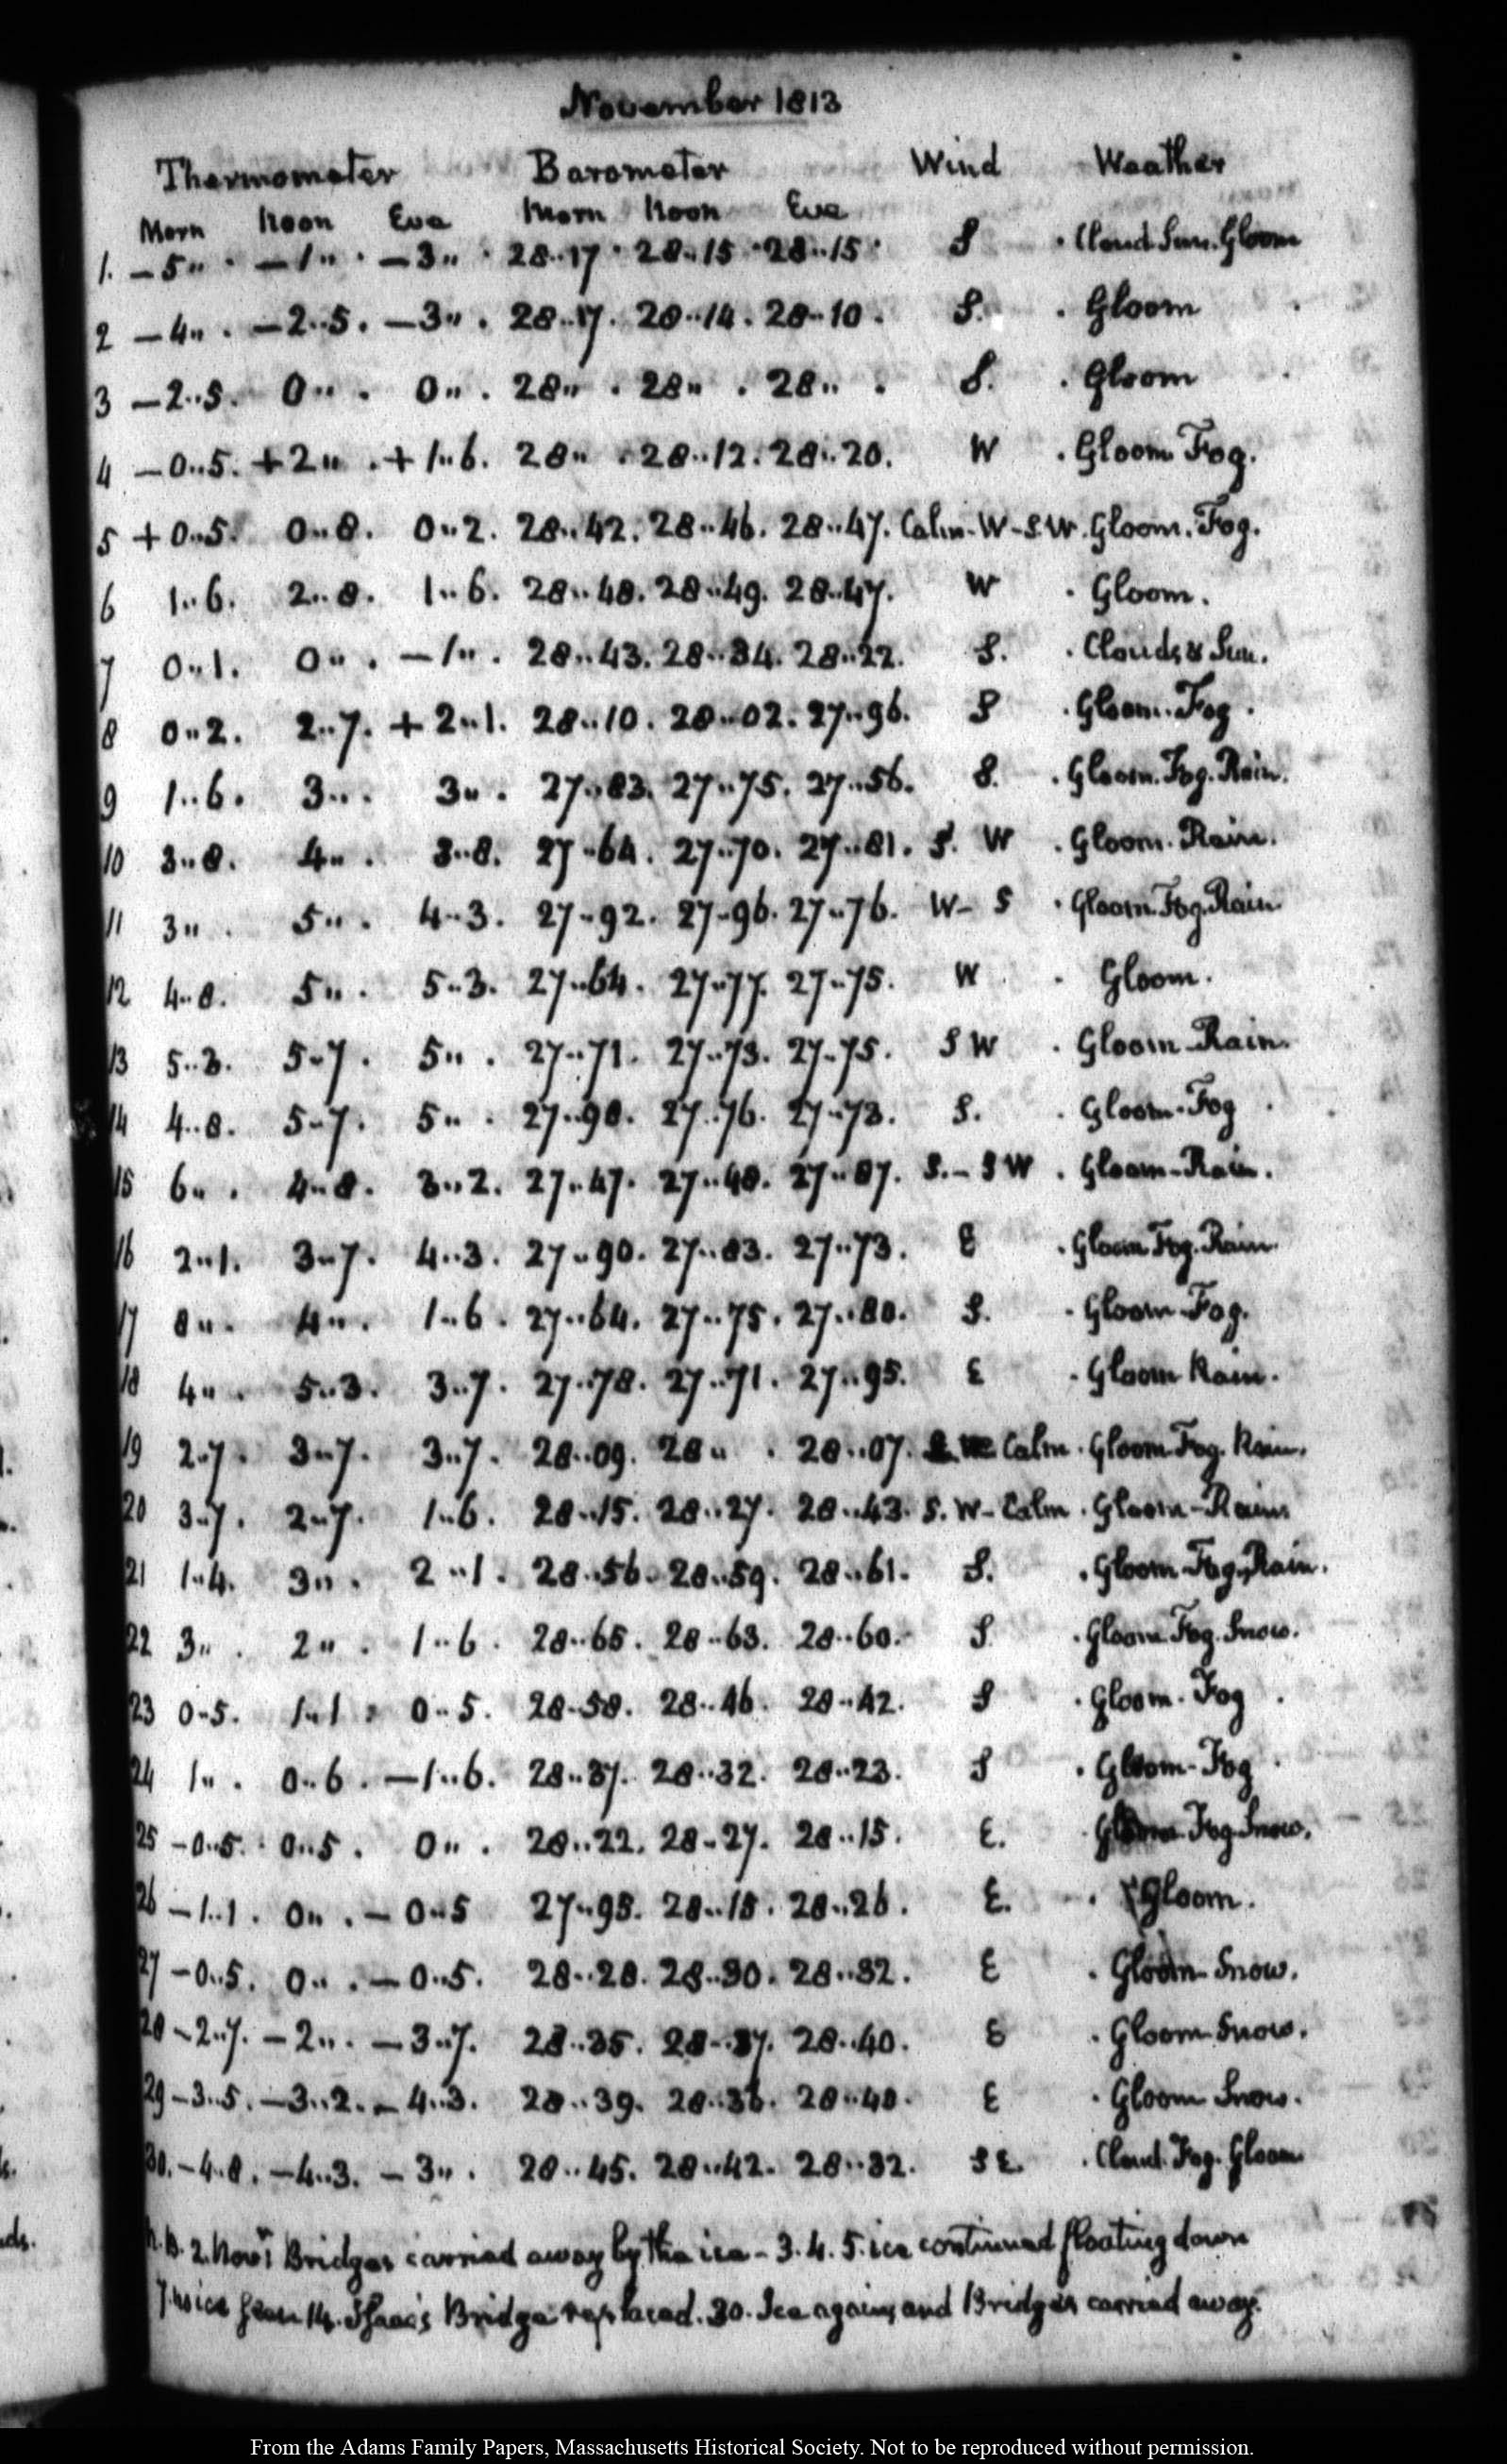 November 1813
Thermometer Barometer Wind Weather
Morn Noon Eve Morn Noon Eve
1. -5.. . -1.. . -3.. . 28..17 . 28..15 . 28..15 . S . Cloud. Sun. Gloom
2 -4.. . -2..5. -3.. . 28..17. 28..14. 28..10. S. . Gloom
3 -2..5. 0.. . 0.. . 28.. . 28.. . 28.. . S. . Gloom
4 -0..5. +2.. . +1..6. 28.. . 28..12. 28..20. W . Gloom Fog.
5 +0..5. 0..8. 0..2. 28..42. 28..46. 28..47. Calm-W-SW. Gloom. Fog.
6 1..6. 2..8. 1..6. 28..48. 28..49. 28..47. W . Gloom.
7 0..1. 0.. . -1.. . 28..43. 28..34. 28..22. S. . Clouds & Sun.
8 0..2. 2..7. +2..1. 28..10. 28..02. 27..96. S . Gloom. Fog.
9 1..6. 3.. . 3.. . 27..83. 27..75. 27..56. S. . Gloom. Fog. Rain.
10 3..8. 4.. . 3..8. 27..64. 27..70. 27..81. S. W . Gloom. Rain.
11 3.. . 5.. . 4..3. 27..92. 27..96. 27..76. W- S . Gloom. Fog. Rain
12 4..8. 5.. . 5..3. 27..64. 27..77. 27..75. W . Gloom.
13 5..3. 5..7. 5.. . 27..71. 27..73. 27..75. S W . Gloom-Rain.
14 4..8. 5..7. 5.. . 27..90. 27..76. 27..73. S. . Gloom-Fog .
15 6.. . 4..8. 3..2. 27..47. 27..48. 27..87. S.-SW . Gloom-Rain.
16 2..1. 3..7. 4..3. 27..90. 27..83. 27..73. E . Gloom Fog. Rain.
17 8.. . 4.. . 1..6. 27..64. 27..75. 27..80. S. . Gloom-Fog.
18 4.. . 5..3. 3..7. 27..78. 27..71. 27..95. E . Gloom Rain.
19 2..7. 3..7. 3..7. 28..09. 28.. . 28..07. Calm . Gloom Fog. Rain.
20 3..7. 2..7. 1..6. 28..15. 28..27. 28..43. S. W-Calm . Gloom-Rain
21 1..4. 3.. . 2..1. 28..56. 28..59. 28..61. S. . Gloom-Fog, Rain.
22 3.. . 2.. . 1..6. 28..65. 28..63. 28..60. S . Gloom Fog. Snow.
23 0..5. 1..1. 0..5. 28..58. 28..46. 28..42. S . Gloom. Fog .
24 1.. . 0..6. -1..6. 28..37. 28..32. 28..23. S . Gloom-Fog .
25 -0..5. 0..5. 0.. . 28..22. 28..27. 28..15. E. Gloom Fog. Snow.
26 -1..1. 0.. . -0..5 27..95. 28..15. 28..26. E. . Gloom.
27 -0..5. 0.. . -0..5. 28..28. 28..30. 28..32. E . Gloom-Snow.
28 -2..7. -2.. . -3..7. 28..35. 28..37. 28..40. E . Gloom-Snow.
29 -3..5. -3..2. -4..3. 28..39. 28..36. 28..40. E . Gloom Snow.
30. -4..8. -4..3. -3.. . 28..45. 28..42. 28..32. S E. . Cloud. Fog. Gloom
N.B. 2. Novr. Bridges carried away by the ice - 3. 4. 5. ice continued floating down
14. Isaac's Bridge replaced. 30. Ice again, and Bridges carried away.
From the Adams Family Papers, Massachusetts Historical Society. Not to be reproduced without permission.